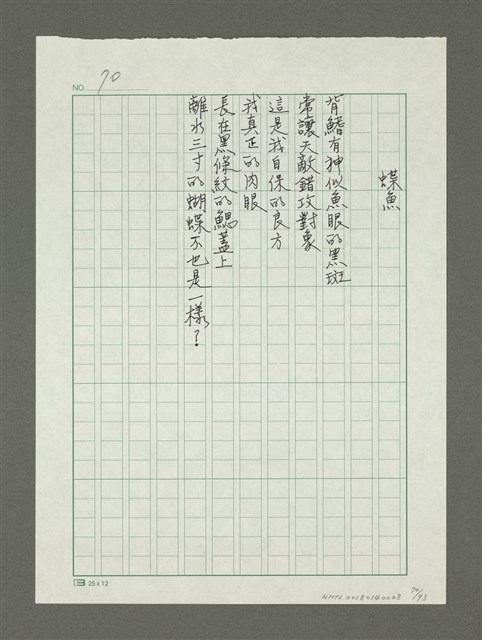 NO. 70
蝶魚
背鰭有神似魚眼的黑斑
常讓天敵錯攻對象
這是我自保的良方
我真正的肉眼
長在黑條紋的鰓蓋上
離水三寸的蝴蝶不也是一樣？
25x12
NMTL 00180140028
70/93